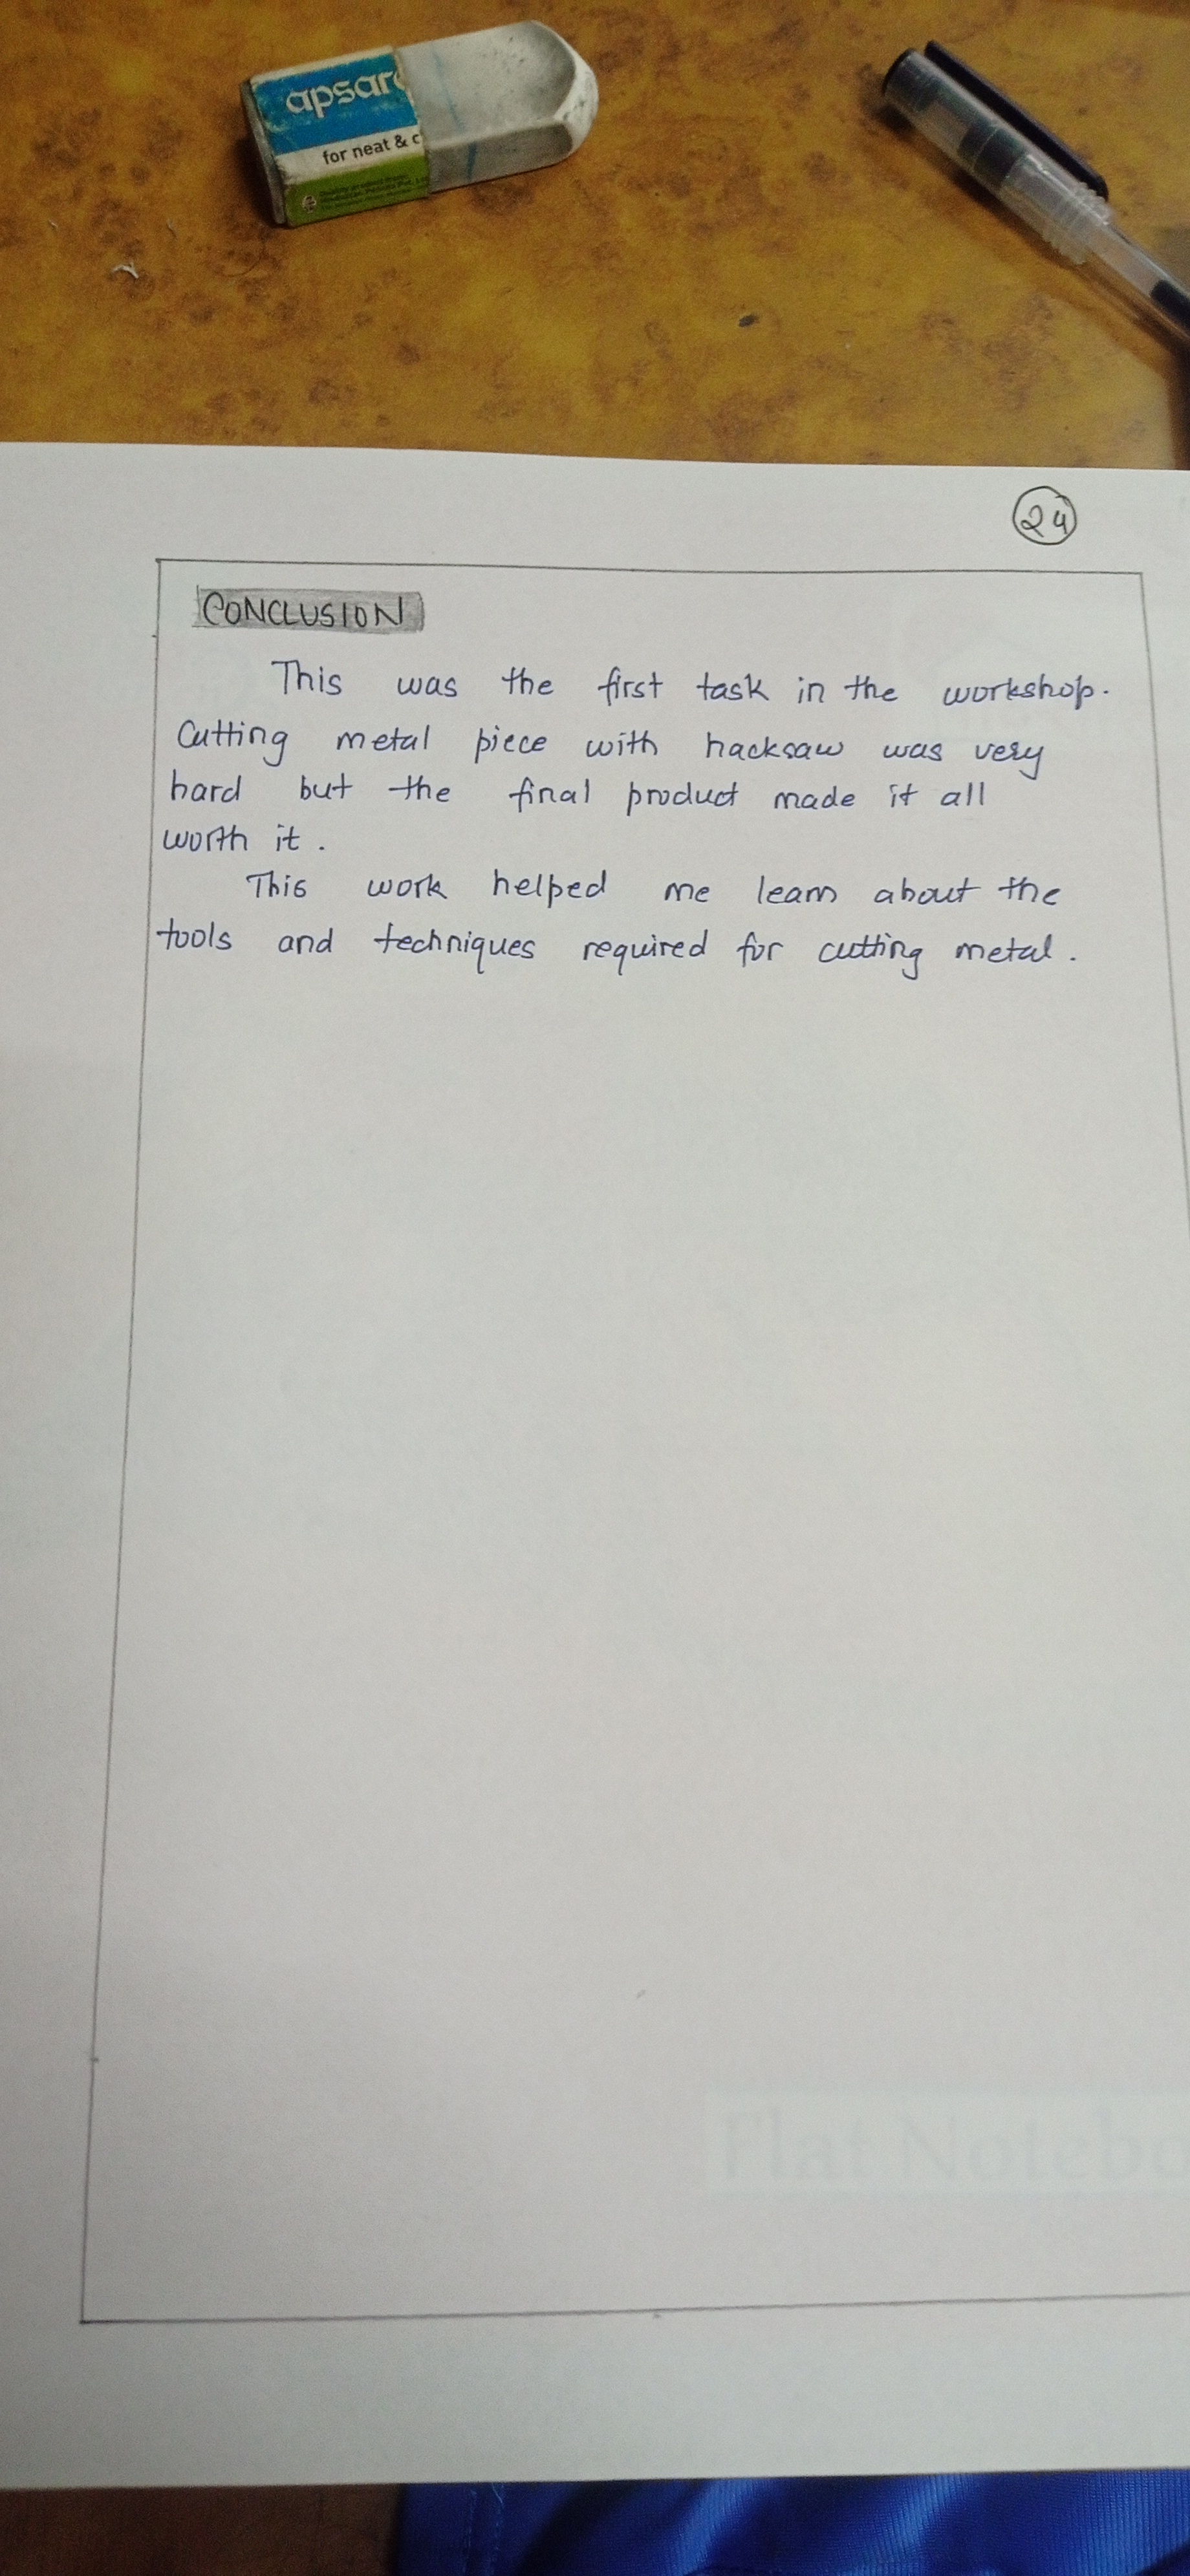 apsar
for neat & c
24
CONCLUSION
This was the first task in the workshop.
Cutting metal piece with hacksaw was very
hard but the final product made it all
worth it.
This work helped me learn about the
tools and techniques required for cutting metal.
Flat Notebo